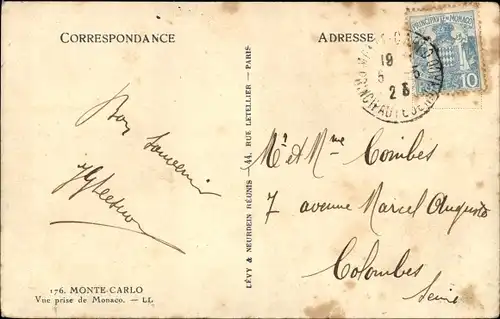 CORRESPONDANCE
Bon Souvenir
176. MONTE-CARLO
Vue prise de Monaco. — LL
LÉVY & NEURDEIN RÉUNIS - 44, RUE LETELLIER — PARIS
ADRESSE
PRINCIPAUTÉ DE MONACO
10
19
5
2
Mr et Mme Combes
7 avenue Marcel Auguste
Colombes
Seine